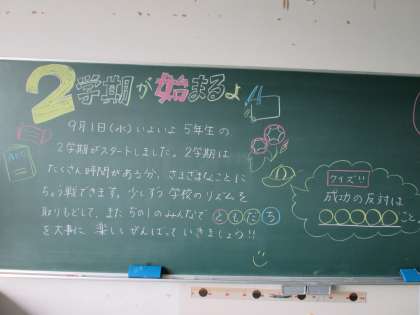 2学期が始まるよ!!
9月1日(水)いよいよ5年生の
2学期がスタートしました。2学期は
たくさん時間がある分、さまざまなことに
ちょう戦できます。少しずつ学校のリズムを
取りもどして、また5の1のみんなでともだち
を大事に楽しくがんばっていきましょう!!
クイズ!!
成功の反対は
○○○○○こと